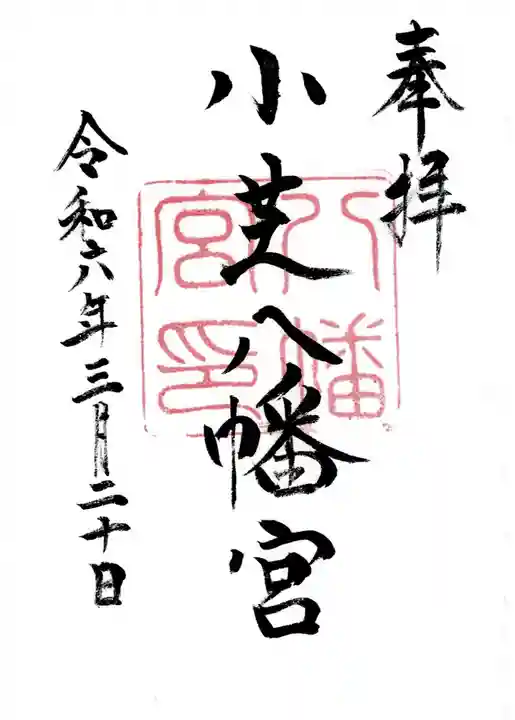 奉拝
小芝八幡宮
八幡宮印
令和六年三月二十日